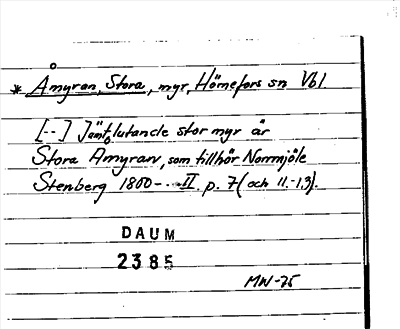 * Åmyran, Stora, myr, Hörnefors sn Vbl.
[--] Jämtlutande stor myr är
Stora Åmyran, som tillhör Norrmjöle
Stenberg 1800-...II. p. 7 (och 11.-13).
DAUM
2385
MW-75